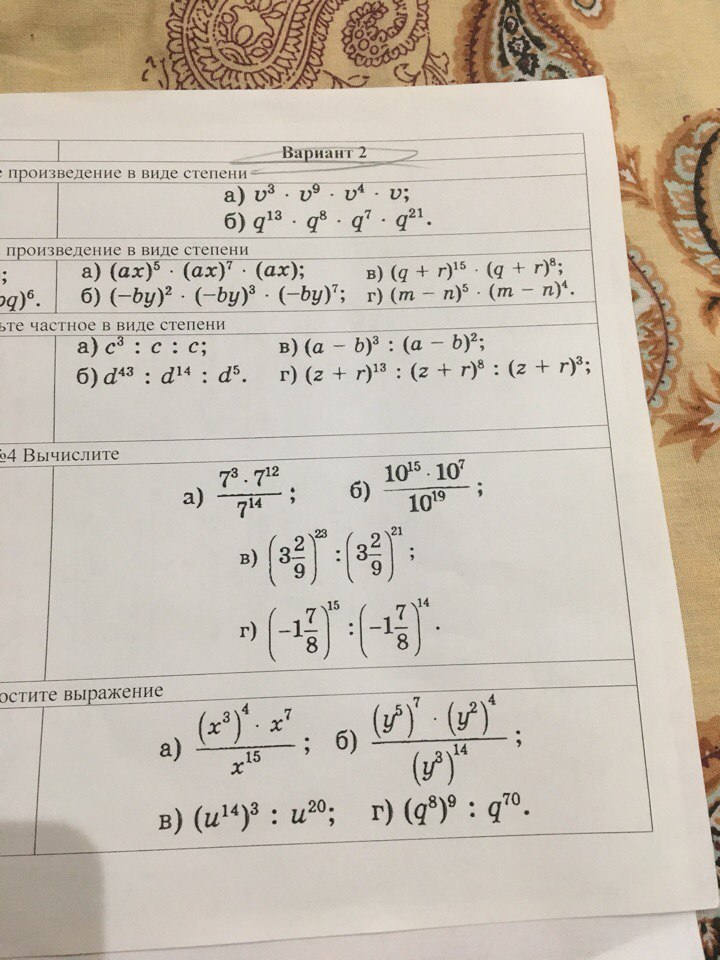 Вариант 2
е произведение в виде степени
а) v³ · v⁹ · v⁴ · v;
б) q¹³ · q⁸ · q⁷ · q²¹.
произведение в виде степени
; а) (ax)⁵ · (ax)⁷ · (ax); в) (q + r)¹⁵ · (q + r)⁸;
q)⁶. б) (−by)² · (−by)³ · (−by)⁷; г) (m − n)⁵ · (m − n)⁴.
ьте частное в виде степени
а) c³ : c : c; в) (a − b)³ : (a − b)²;
б) d⁴³ : d¹⁴ : d⁵. г) (z + r)¹³ : (z + r)⁸ : (z + r)³;
№4 Вычислите
а) 7³ · 7¹² / 7¹⁴ ; б) 10¹⁵ · 10⁷ / 10¹⁹ ;
в) (3 2/9)²³ : (3 2/9)²¹ ;
г) (−1 7/8)¹⁵ : (−1 7/8)¹⁴ .
остите выражение
а) (x³)⁴ · x⁷ / x¹⁵ ; б) (y⁵)⁷ · (y²)⁴ / (y³)¹⁴ ;
в) (u¹⁴)³ : u²⁰; г) (q⁸)⁹ : q⁷⁰.